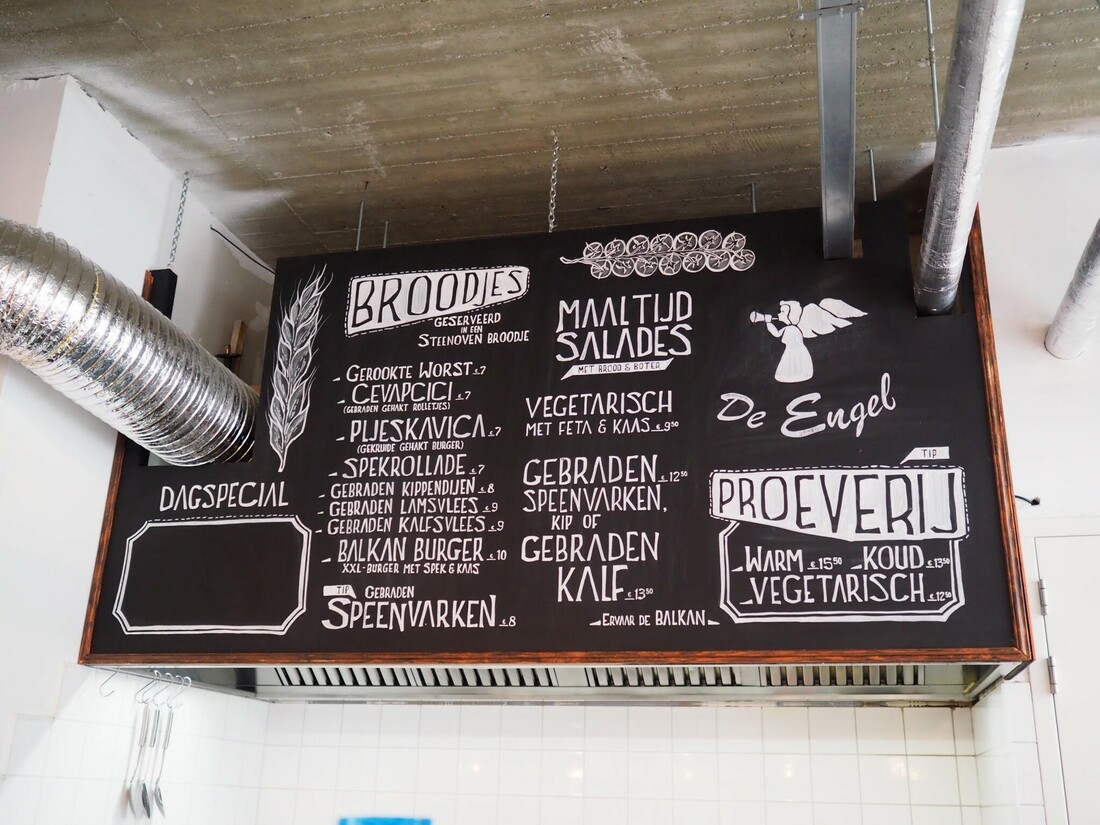 DAGSPECIAL
BROODJES
GESERVEERD
IN EEN
STEENOVEN BROODJE
- GEROOKTE WORST €7
- CEVAPCICI €7
(GEBRADEN GEHAKT ROLLETJES)
- PLJESKAVICA €7
(GEKRUIDE GEHAKT BURGER)
- SPEKROLLADE €7
- GEBRADEN KIPPENDIJEN €8
- GEBRADEN LAMSVLEES €9
- GEBRADEN KALFSVLEES €9
- BALKAN BURGER €10
XXL-BURGER MET SPEK & KAAS
TIP GEBRADEN
SPEENVARKEN €8
MAALTIJD
SALADES
MET BROOD & BOTER
VEGETARISCH
MET FETA & KAAS €950
GEBRADEN €1250
SPEENVARKEN,
KIP OF
GEBRADEN
KALF €1350
ERVAAR DE BALKAN
De Engel
TIP
PROEVERIJ
- WARM €1550 - KOUD €1350
- VEGETARISCH €1250